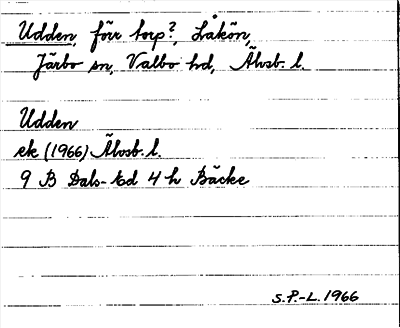 Udden, förr torp?, Låkön,
Järbo sn, Valbo hd, Älvsb. l.
Udden
ek (1966) Älvsb. l.
9 B Dals-Ed 4 h Bäcke
S.P.-L. 1966